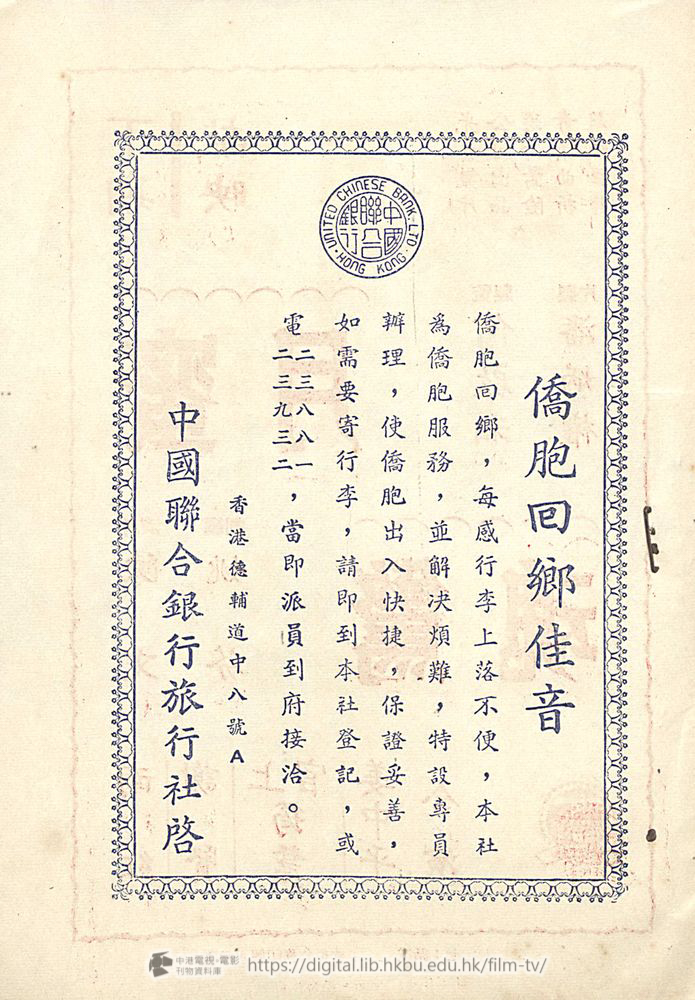 UNITED CHINESE BANK LTD.
HONG KONG
中國聯合銀行
僑胞回鄉佳音
僑胞回鄉，每感行李上落不便，本社
為僑胞服務，並解決煩難，特設專員
辦理，使僑胞出入快捷，保證妥善，
如需要寄行李，請即到本社登記，或
電二三八八一
二三九三二，當即派員到府接洽。
香港德輔道中八號A
中國聯合銀行旅行社啓
中港電視·電影
刊物資料庫
https://digital.lib.hkbu.edu.hk/film-tv/